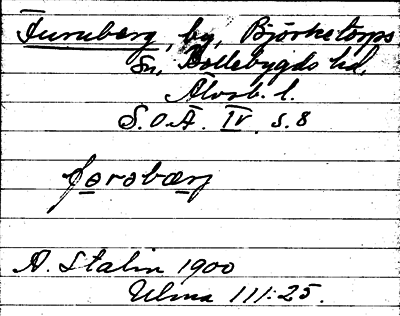 Furuberg, by, Björketorps
Sn, Bollebygds hd,
Älvsb. l.
S.O.Ä. IV s. 8
A. Stalin 1900
Ulma 111:25.